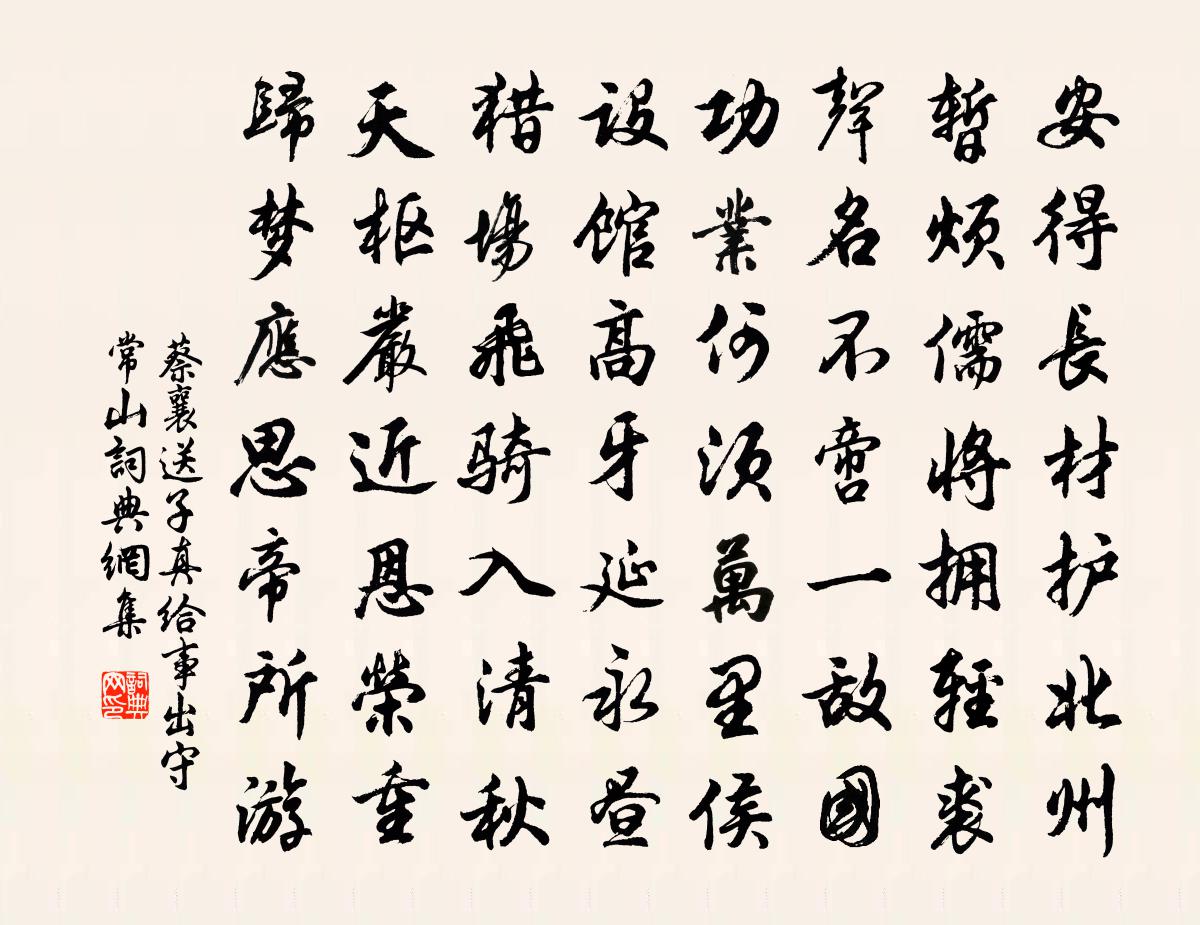 安得長材护北州
暫煩儒将拥輕裘
聲名不啻一敌國
功業何須萬里侯
設館高牙延永昼
猎場飛骑入清秋
天枢嚴近恩榮重
歸梦應思帝所游
蔡襄送子真给事出守
常山詞典網集
詞典
网印